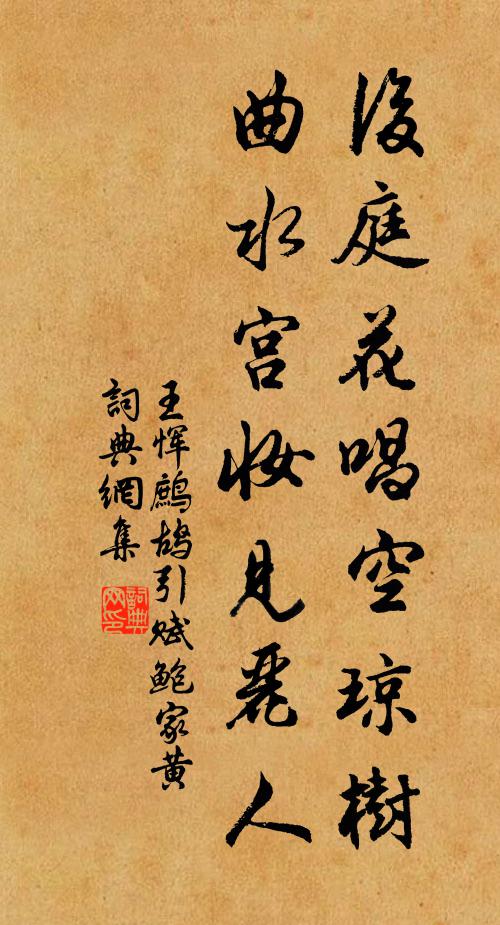 後庭花唱空琼樹
曲水宫妝見麗人
王恽鷓鴣引賦鲍家黄
詞典網集
詞典
网印